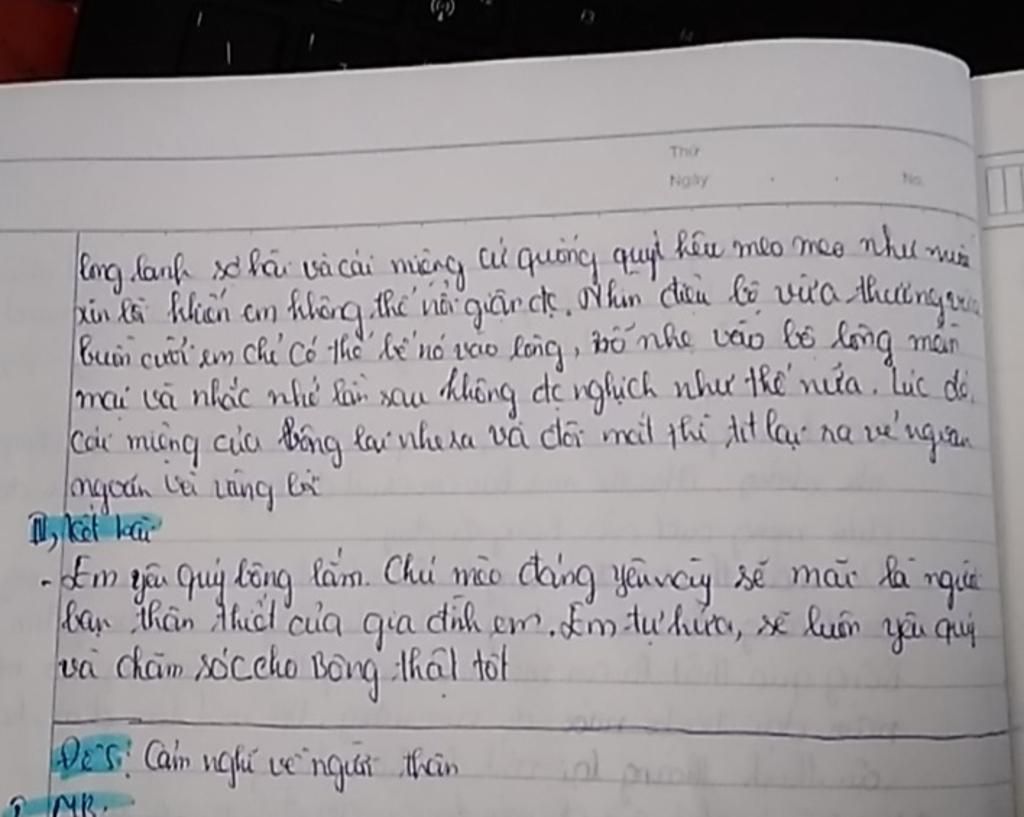 Thứ
Ngày No.
long lanh sợ hãi và cái miệng cứ quống quýt kêu meo meo như muốn
xin lỗi khiến em không thể nổi giận đc. Nhìn điệu bộ vừa thương vừa
buồn cười em chỉ có thể bế nó vào lòng, vỗ nhẹ vào bộ lông mền
mại và nhắc nhở lần sau không đc nghịch như thế nữa. Lúc đó,
cái miệng của Bông lại nhe ra và đôi mắt thì tít lại ra vẻ ngoan
ngoãn và vâng lời
III, kết bài
- Em yêu quý bông lắm. Chú mèo đáng yêu này sẽ mãi là người
bạn thân thiết của gia đình em. Em tự hứa, sẽ luôn yêu quý
và chăm sóc cho Bông thật tốt
Đề 5: Cảm nghĩ về người thân
I, MB: